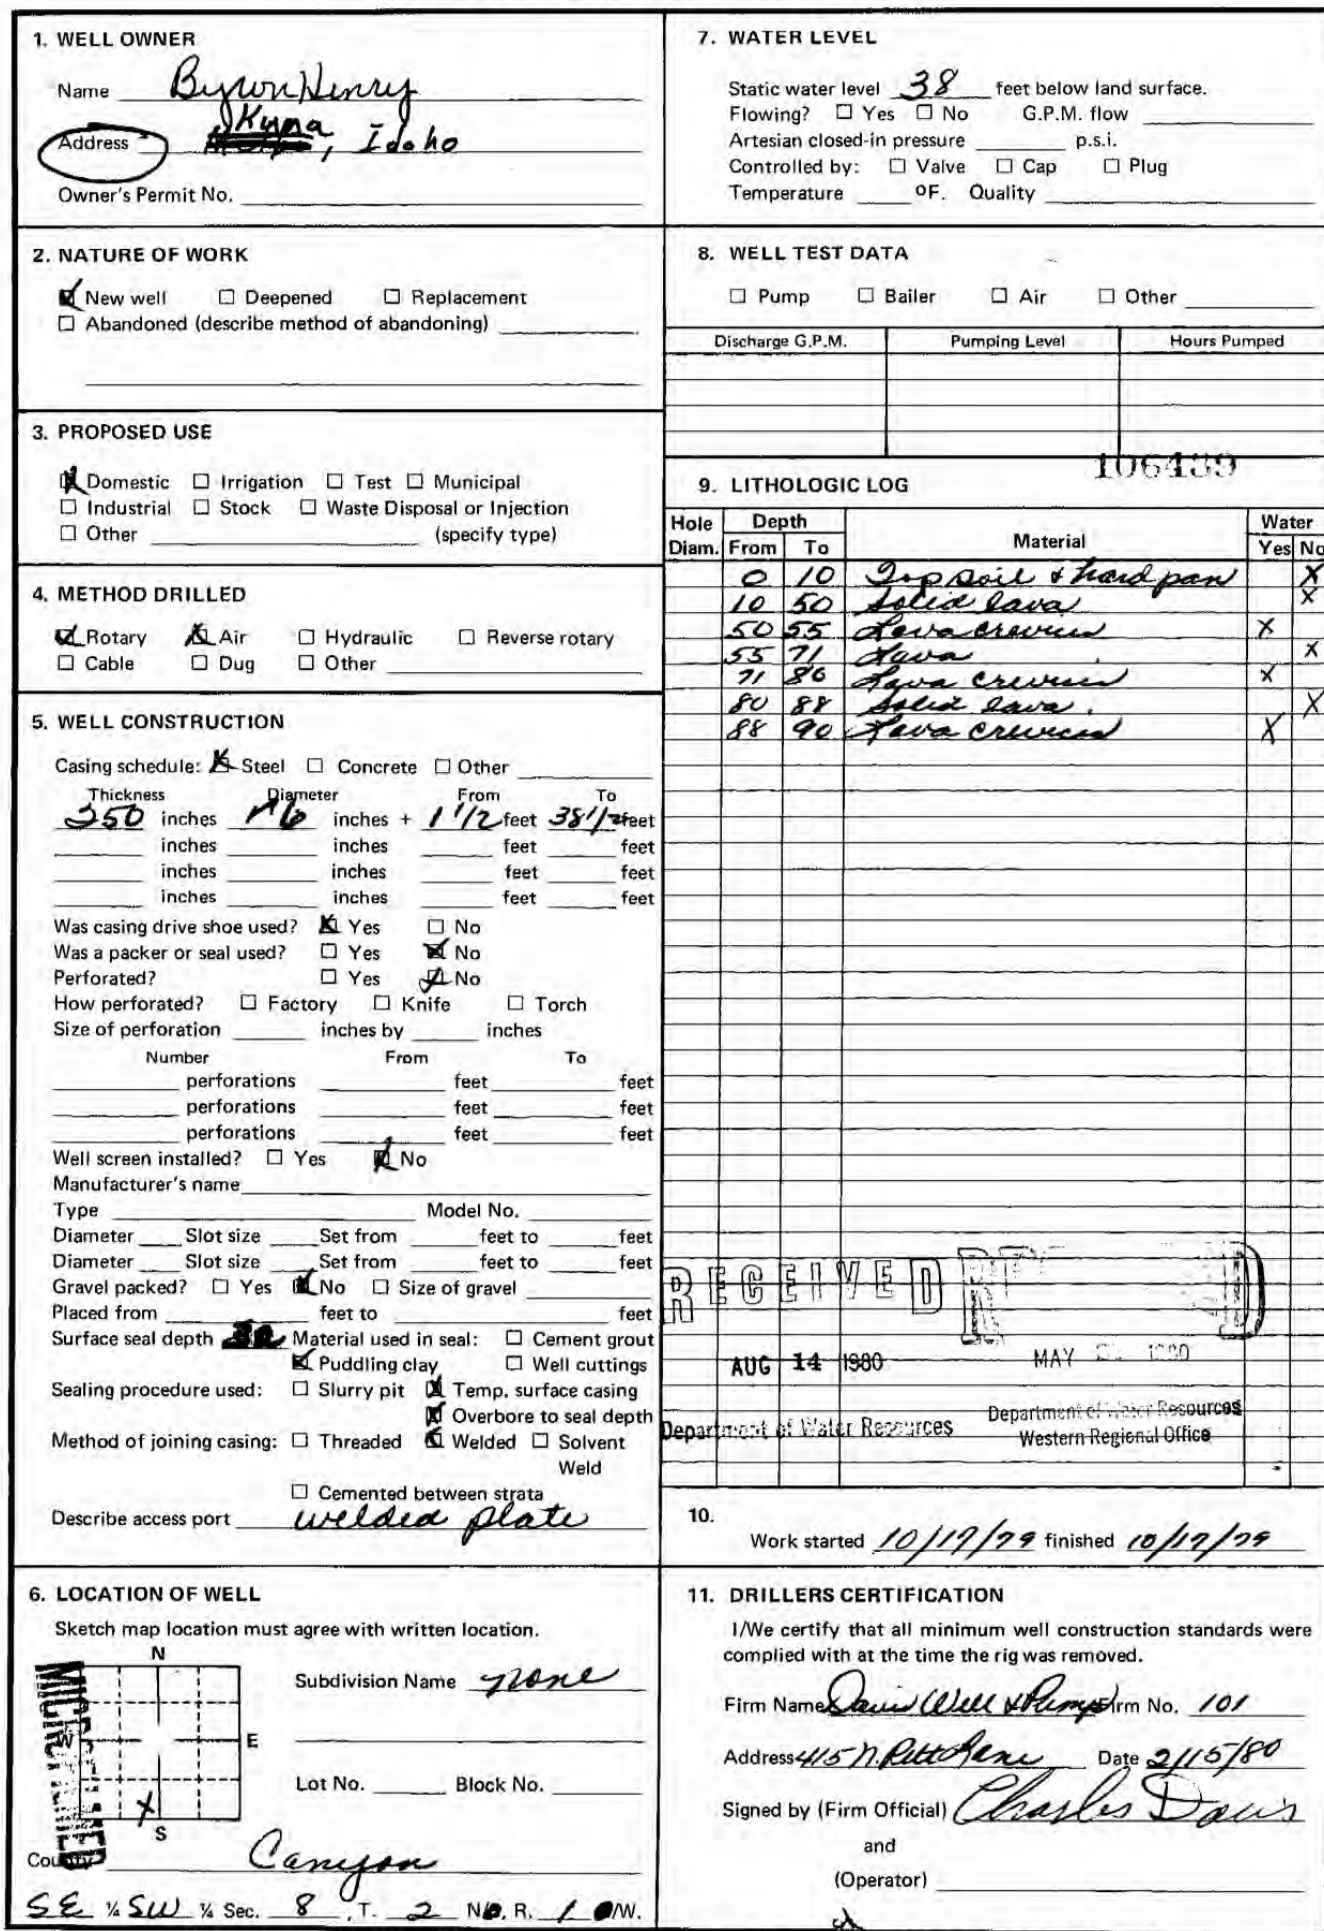 1. WELL OWNER
Name Byron Henry
Address Kuna, Idaho
Owner's Permit No.
2. NATURE OF WORK
☒ New well ☐ Deepened ☐ Replacement
☐ Abandoned (describe method of abandoning)
3. PROPOSED USE
☒ Domestic ☐ Irrigation ☐ Test ☐ Municipal
☐ Industrial ☐ Stock ☐ Waste Disposal or Injection
☐ Other (specify type)
4. METHOD DRILLED
☒ Rotary ☒ Air ☐ Hydraulic ☐ Reverse rotary
☐ Cable ☐ Dug ☐ Other
5. WELL CONSTRUCTION
Casing schedule: ☒ Steel ☐ Concrete ☐ Other
Thickness Diameter From To
250 inches 6 inches + 1 1/2 feet 38 1/2 feet
inches inches feet feet
inches inches feet feet
inches inches feet feet
Was casing drive shoe used? ☒ Yes ☐ No
Was a packer or seal used? ☐ Yes ☒ No
Perforated? ☐ Yes ☒ No
How perforated? ☐ Factory ☐ Knife ☐ Torch
Size of perforation inches by inches
Number From To
perforations feet feet
perforations feet feet
perforations feet feet
Well screen installed? ☐ Yes ☒ No
Manufacturer's name
Type Model No.
Diameter Slot size Set from feet to feet
Diameter Slot size Set from feet to feet
Gravel packed? ☐ Yes ☒ No ☐ Size of gravel
Placed from feet to feet
Surface seal depth Material used in seal: ☐ Cement grout
☒ Puddling clay ☐ Well cuttings
Sealing procedure used: ☐ Slurry pit ☒ Temp. surface casing
☒ Overbore to seal depth
Method of joining casing: ☐ Threaded ☒ Welded ☐ Solvent
Weld
☐ Cemented between strata
Describe access port welded plate
6. LOCATION OF WELL
Sketch map location must agree with written location.
N
W E
X
S
MICROFILMED
Subdivision Name none
Lot No. Block No.
County Canyon
SE ¼ SW ¼ Sec. 8, T. 2 N, R. 1 /W.
7. WATER LEVEL
Static water level 38 feet below land surface.
Flowing? ☐ Yes ☐ No G.P.M. flow
Artesian closed-in pressure p.s.i.
Controlled by: ☐ Valve ☐ Cap ☐ Plug
Temperature ºF. Quality
8. WELL TEST DATA
☐ Pump ☐ Bailer ☐ Air ☐ Other
Discharge G.P.M. Pumping Level Hours Pumped
106439
9. LITHOLOGIC LOG
Hole Depth Water
Diam. From To Material Yes No
0 10 Top soil & hard pan X
10 50 Solid lava X
50 55 Lava crevices X
55 71 Lava X
71 80 Lava crevices X
80 88 Solid lava X
88 90 Lava crevices X
RECEIVED
AUG 14 1980
Department of Water Resources
MAY 1980
Department of Water Resources
Western Regional Office
10.
Work started 10/17/79 finished 10/17/79
11. DRILLERS CERTIFICATION
I/We certify that all minimum well construction standards were
complied with at the time the rig was removed.
Firm Name Davis Well & Pump Firm No. 101
Address 415 N. Date 2/15/80
Signed by (Firm Official) Charles Davis
and
(Operator)